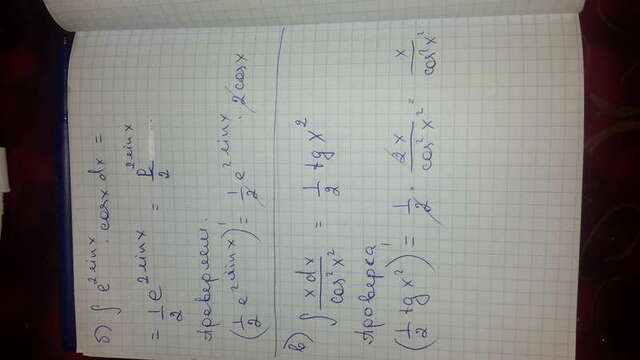 б) ∫ e^{2sinx} · cosx dx =
= 1/2 e^{2sinx} = e^{2sinx}/2
Проверяем:
(1/2 e^{2sinx})' = 1/2 e^{2sinx} · 2cosx
в) ∫ xdx/cos²x² = 1/2 tg x²
Проверка
(1/2 tg x²)' = 1/2 · 2x/cos²x² = x/cos²x²